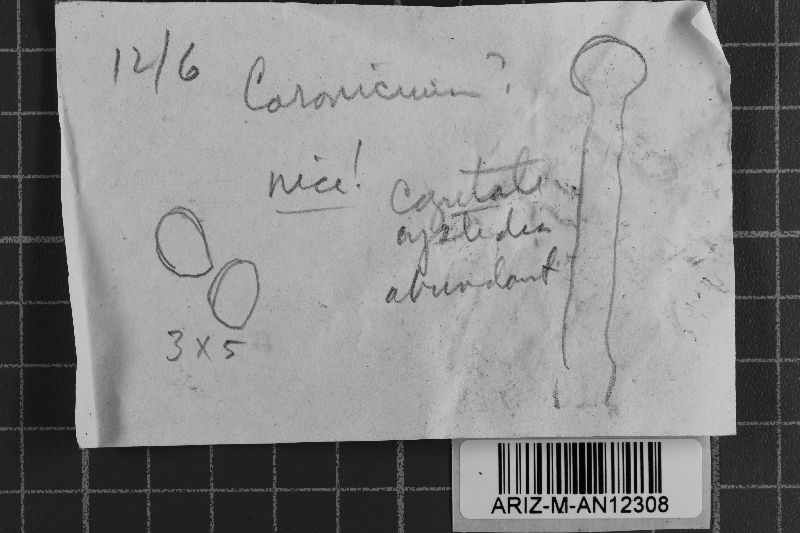 1216
Coronicium?
nice!
capitate
cystidia
abundant
3 x 5
ARIZ-M-AN12308